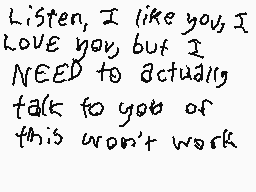 Listen, I like you, I
LOVE you, but I
NEED to actually
talk to you or
this won't work